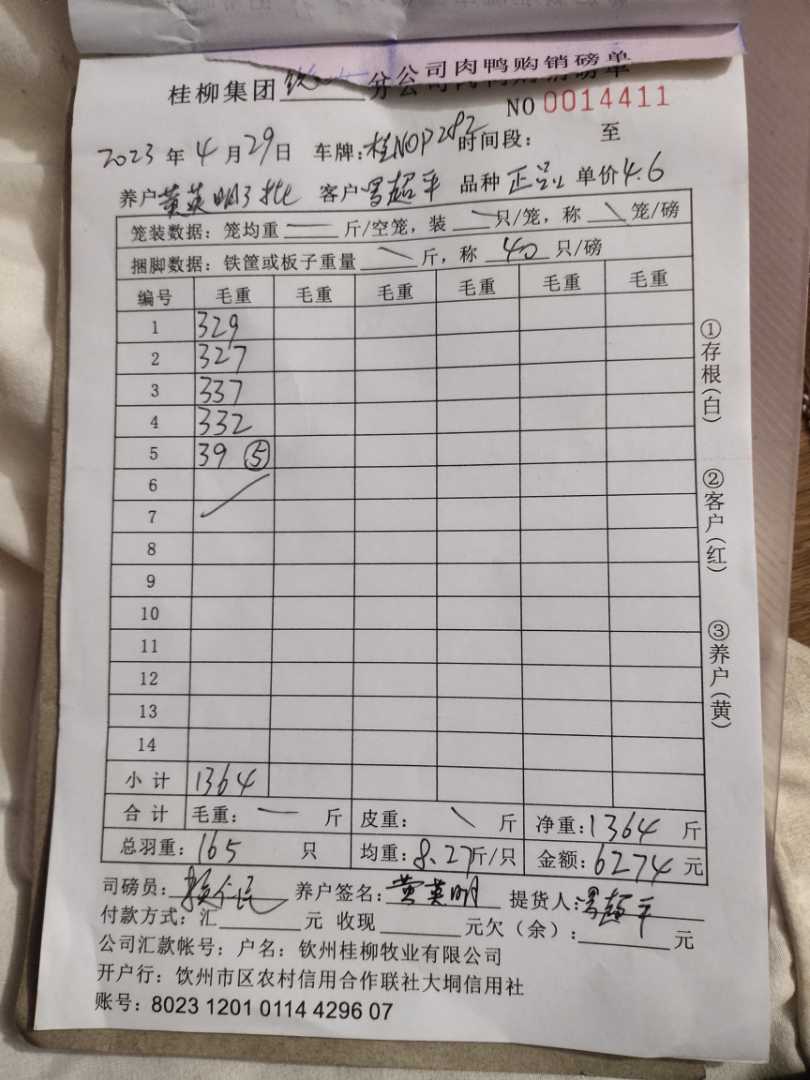 桂柳集团 钦州 分公司肉鸭购销磅单
NO 0014411
2023 年 4 月 29 日 车牌：桂NOP282 时间段： 至
养户 黄英明3批 客户 超平 品种 正品 单价 4.6
笼装数据：笼均重 — 斤/空笼，装 \ 只/笼，称 \ 笼/磅
捆脚数据：铁筐或板子重量 \ 斤，称 40 只/磅
编号 毛重 毛重 毛重 毛重 毛重 毛重
1 329
2 327
3 337
4 332
5 39 ⑤
6
7
8
9
10
11
12
13
14
小计 1364
合计 毛重： — 斤 皮重： \ 斤 净重：1364 斤
总羽重：165 只 均重：8.27斤/只 金额：6274 元
司磅员： 养户签名：黄英明 提货人：超平
付款方式：汇 元 收现 元欠（余）： 元
公司汇款帐号：户名：钦州桂柳牧业有限公司
开户行：饮州市区农村信用合作联社大垌信用社
账号：8023 1201 0114 4296 07
①存根（白）
②客户（红）
③养户（黄）